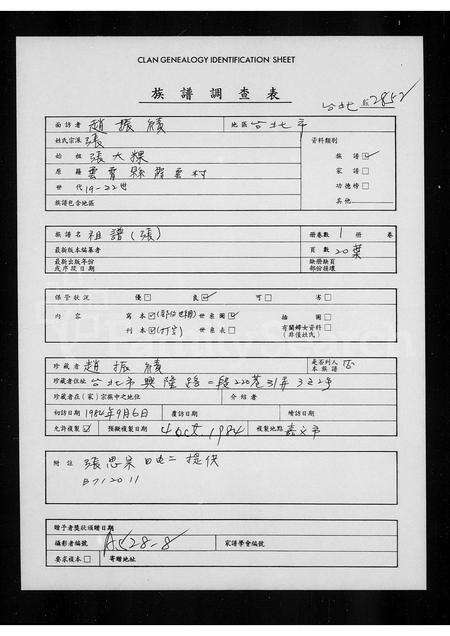 CLAN GENEALOGY IDENTIFICATION SHEET
族譜調查表
台北 2852
面訪者 趙振績 地區 台北市
姓氏宗派 張 資料類別
始祖 張大粿 族譜 ☑
原籍 雲霄縣 家譜 □
世代 19-22世 功德榜 □
族譜包含地區 其他
族譜名 祖譜(張) 冊卷數 1 冊 卷
最新版本編纂者 頁數 20葉
最新出版年份 缺冊缺頁
或序跋日期 部份損壞
保管狀況 優□ 良☑ 可□ 劣□
內容 寫本☑ 世系圖☑ 插圖□
刊本☑(打字) 世系表□ 有關婦女資料□
(非僅姓氏)
珍藏者 趙振績 是否列入
本族譜 否
珍藏者住址 台北市興隆路一段220巷31弄3之2號
珍藏者在(家)宗族中之地位 介紹者
初訪日期 1984年9月6日 覆訪日期 續訪日期
允許複製☑ 預擬複製日期 4 Oct. 1984 複製地點
附註 張思 提供
B712011
贈予者獎狀頒贈日期
攝影者編號 A528-8 家譜學會編號
要求複本□ 寄贈地址